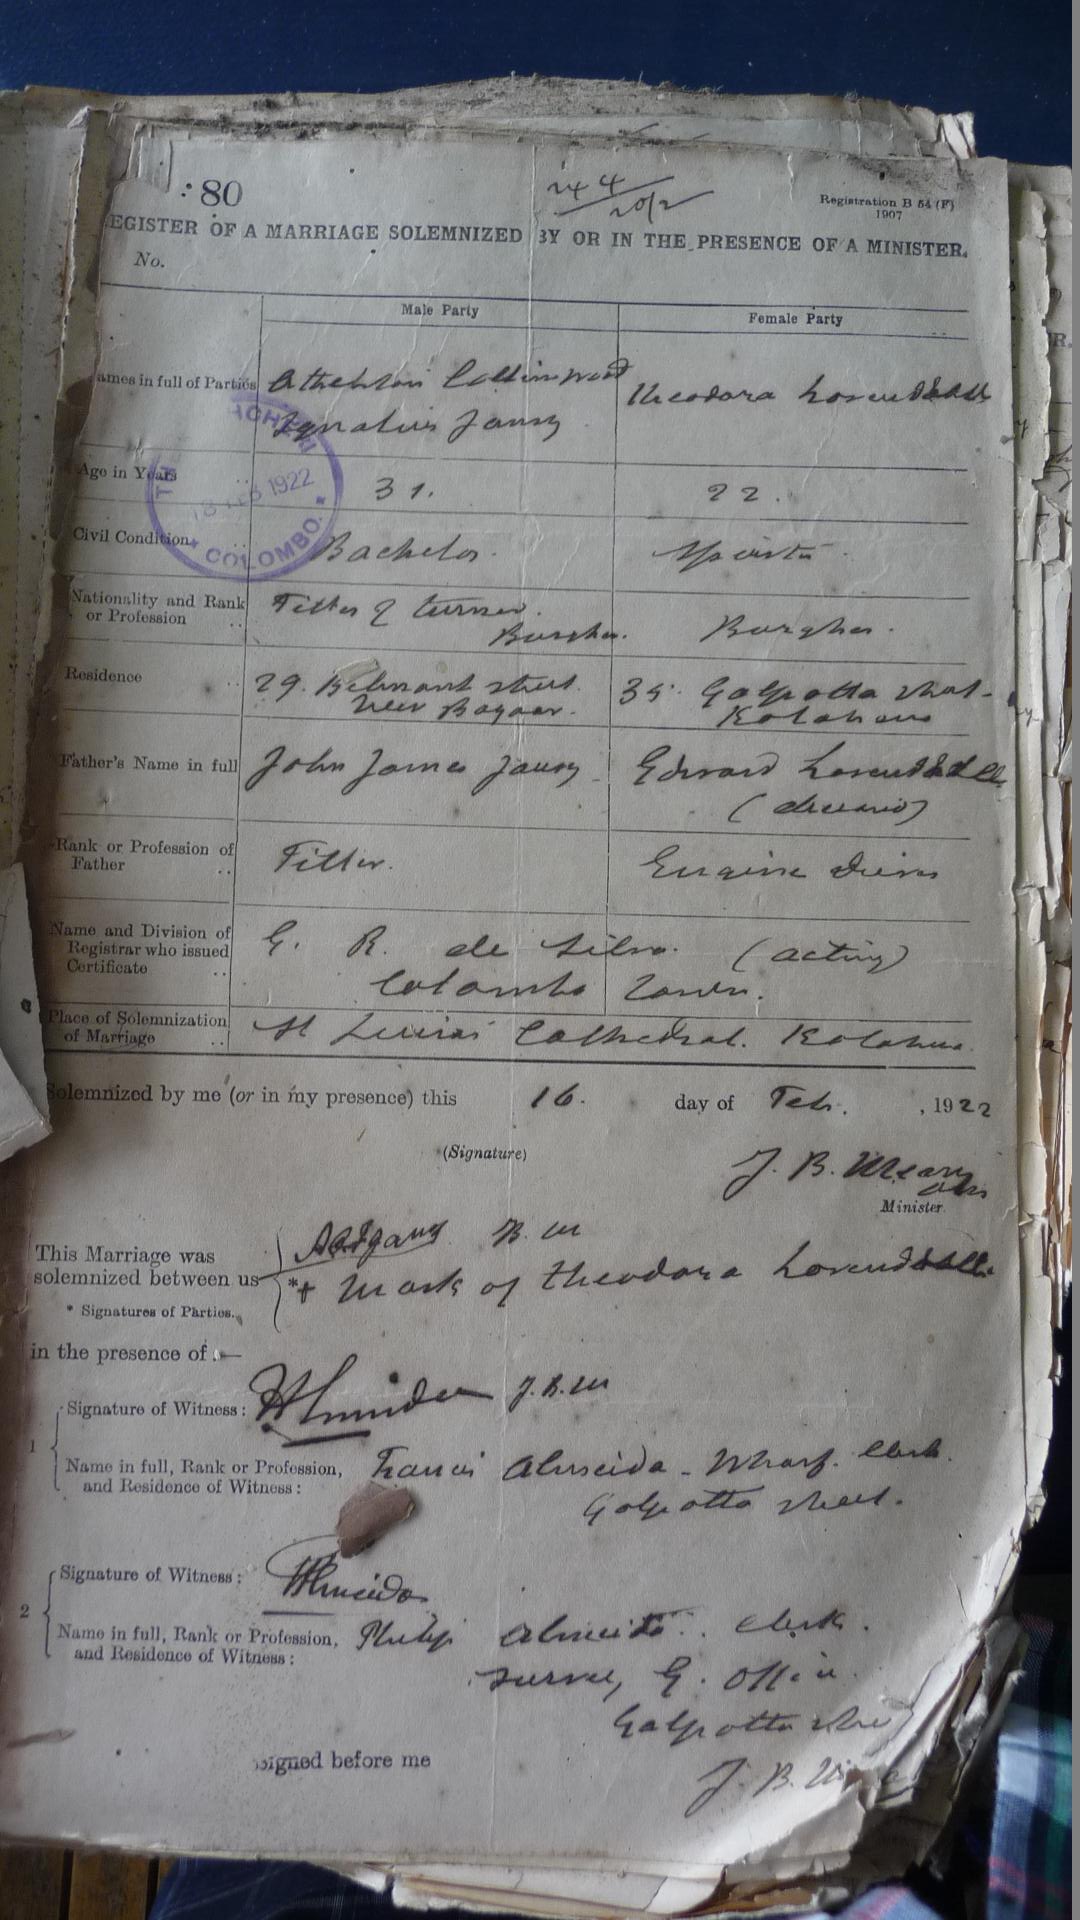 : 80
24 4/20/2
Registration B 54 (F)
1907
EGISTER OF A MARRIAGE SOLEMNIZED BY OR IN THE PRESENCE OF A MINISTER.
No.
Male Party
Female Party
ames in full of Parties
Theodora
Ignatius Jansz
ACHERI
1922
COLOMBO
Age in Years
31.
22.
Civil Condition
Bachelor.
Spinster.
Nationality and Rank or Profession
Fitter & turner.
Burgher.
Burgher.
Residence
29.
street.
New Bazaar.
35. Galpotta street
Father's Name in full
John James Jansz
Edward
(deceased)
Rank or Profession of Father
Fitter.
Engine driver
Name and Division of Registrar who issued Certificate
G. R. de Silva. (acting)
Colombo Town.
Place of Solemnization of Marriage
St Lucia's Cathedral.
Solemnized by me (or in my presence) this 16. day of Feb. , 1922
(Signature)
J. B.
Minister
This Marriage was
solemnized between us
* Signatures of Parties.
* + Mark of Theodora
in the presence of :—
1
Signature of Witness :
Name in full, Rank or Profession, and Residence of Witness :
Francis Almeida - Wharf. Clerk.
Galpotta street.
2
Signature of Witness :
Name in full, Rank or Profession, and Residence of Witness :
Philip Almeida. Clerk.
Survey G. Office
Galpotta street
signed before me
J. B.